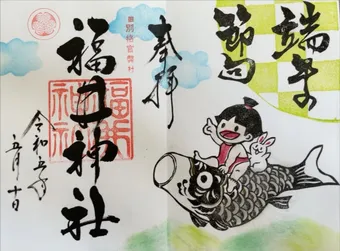 端午の
節句
奉拝
別格官幣社
福井神社
福井
神社
令和五年
五月十日